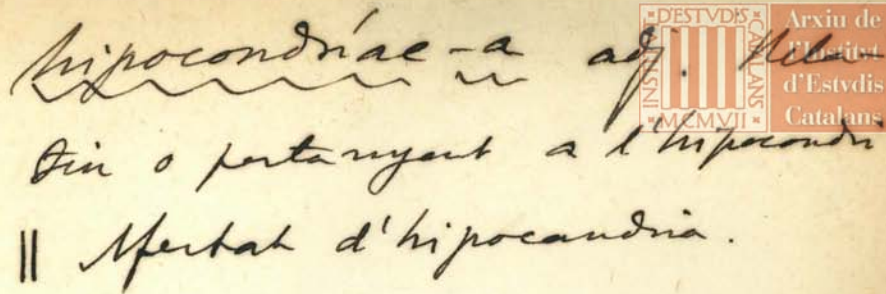 hipocondríac -a adj. Rela-
tiu o pertanyent a l'hipocondri
|| Afectat d'hipocondria.
INSTITVT D'ESTVDIS CATALANS MCMVII
Arxiu de
l'Institvt
d'Estvdis
Catalans